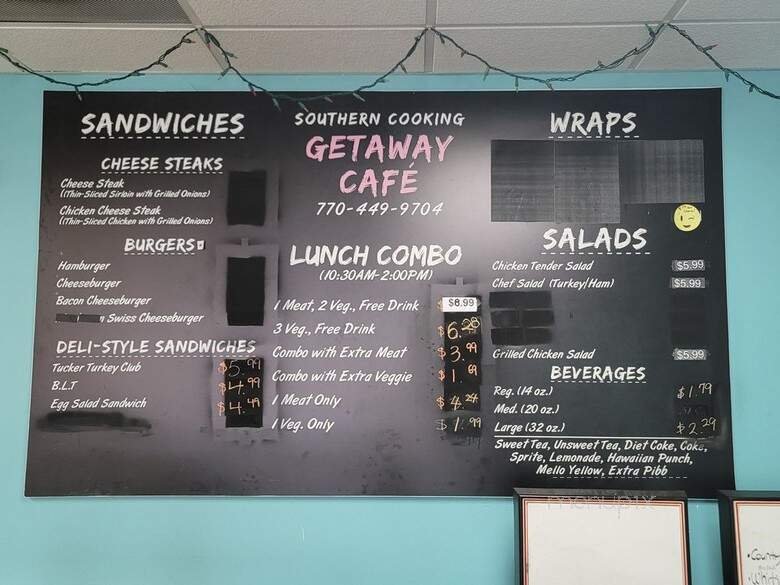 SANDWICHES
CHEESE STEAKS
Cheese Steak
(Thin-Sliced Sirloin with Grilled Onions)
Chicken Cheese Steak
(Thin-Sliced Chicken with Grilled Onions)
BURGERS
Hamburger
Cheeseburger
Bacon Cheeseburger
n Swiss Cheeseburger
DELI-STYLE SANDWICHES
Tucker Turkey Club $5.99
B.L.T $4.99
Egg Salad Sandwich $4.49
SOUTHERN COOKING
GETAWAY
CAFÉ
770-449-9704
LUNCH COMBO
(10:30AM-2:00PM)
1 Meat, 2 Veg., Free Drink $8.99
3 Veg., Free Drink $6.28
Combo with Extra Meat $3.99
Combo with Extra Veggie $1.69
1 Meat Only $4.24
1 Veg. Only $1.99
WRAPS
SALADS
Chicken Tender Salad $5.99
Chef Salad (Turkey|Ham) $5.99
Grilled Chicken Salad $5.99
BEVERAGES
Reg. (14 oz.) $1.79
Med. (20 oz.)
Large (32 oz.) $2.29
Sweet Tea, Unsweet Tea, Diet Coke, Coke,
Sprite, Lemonade, Hawaiian Punch,
Mello Yellow, Extra Pibb
menupix